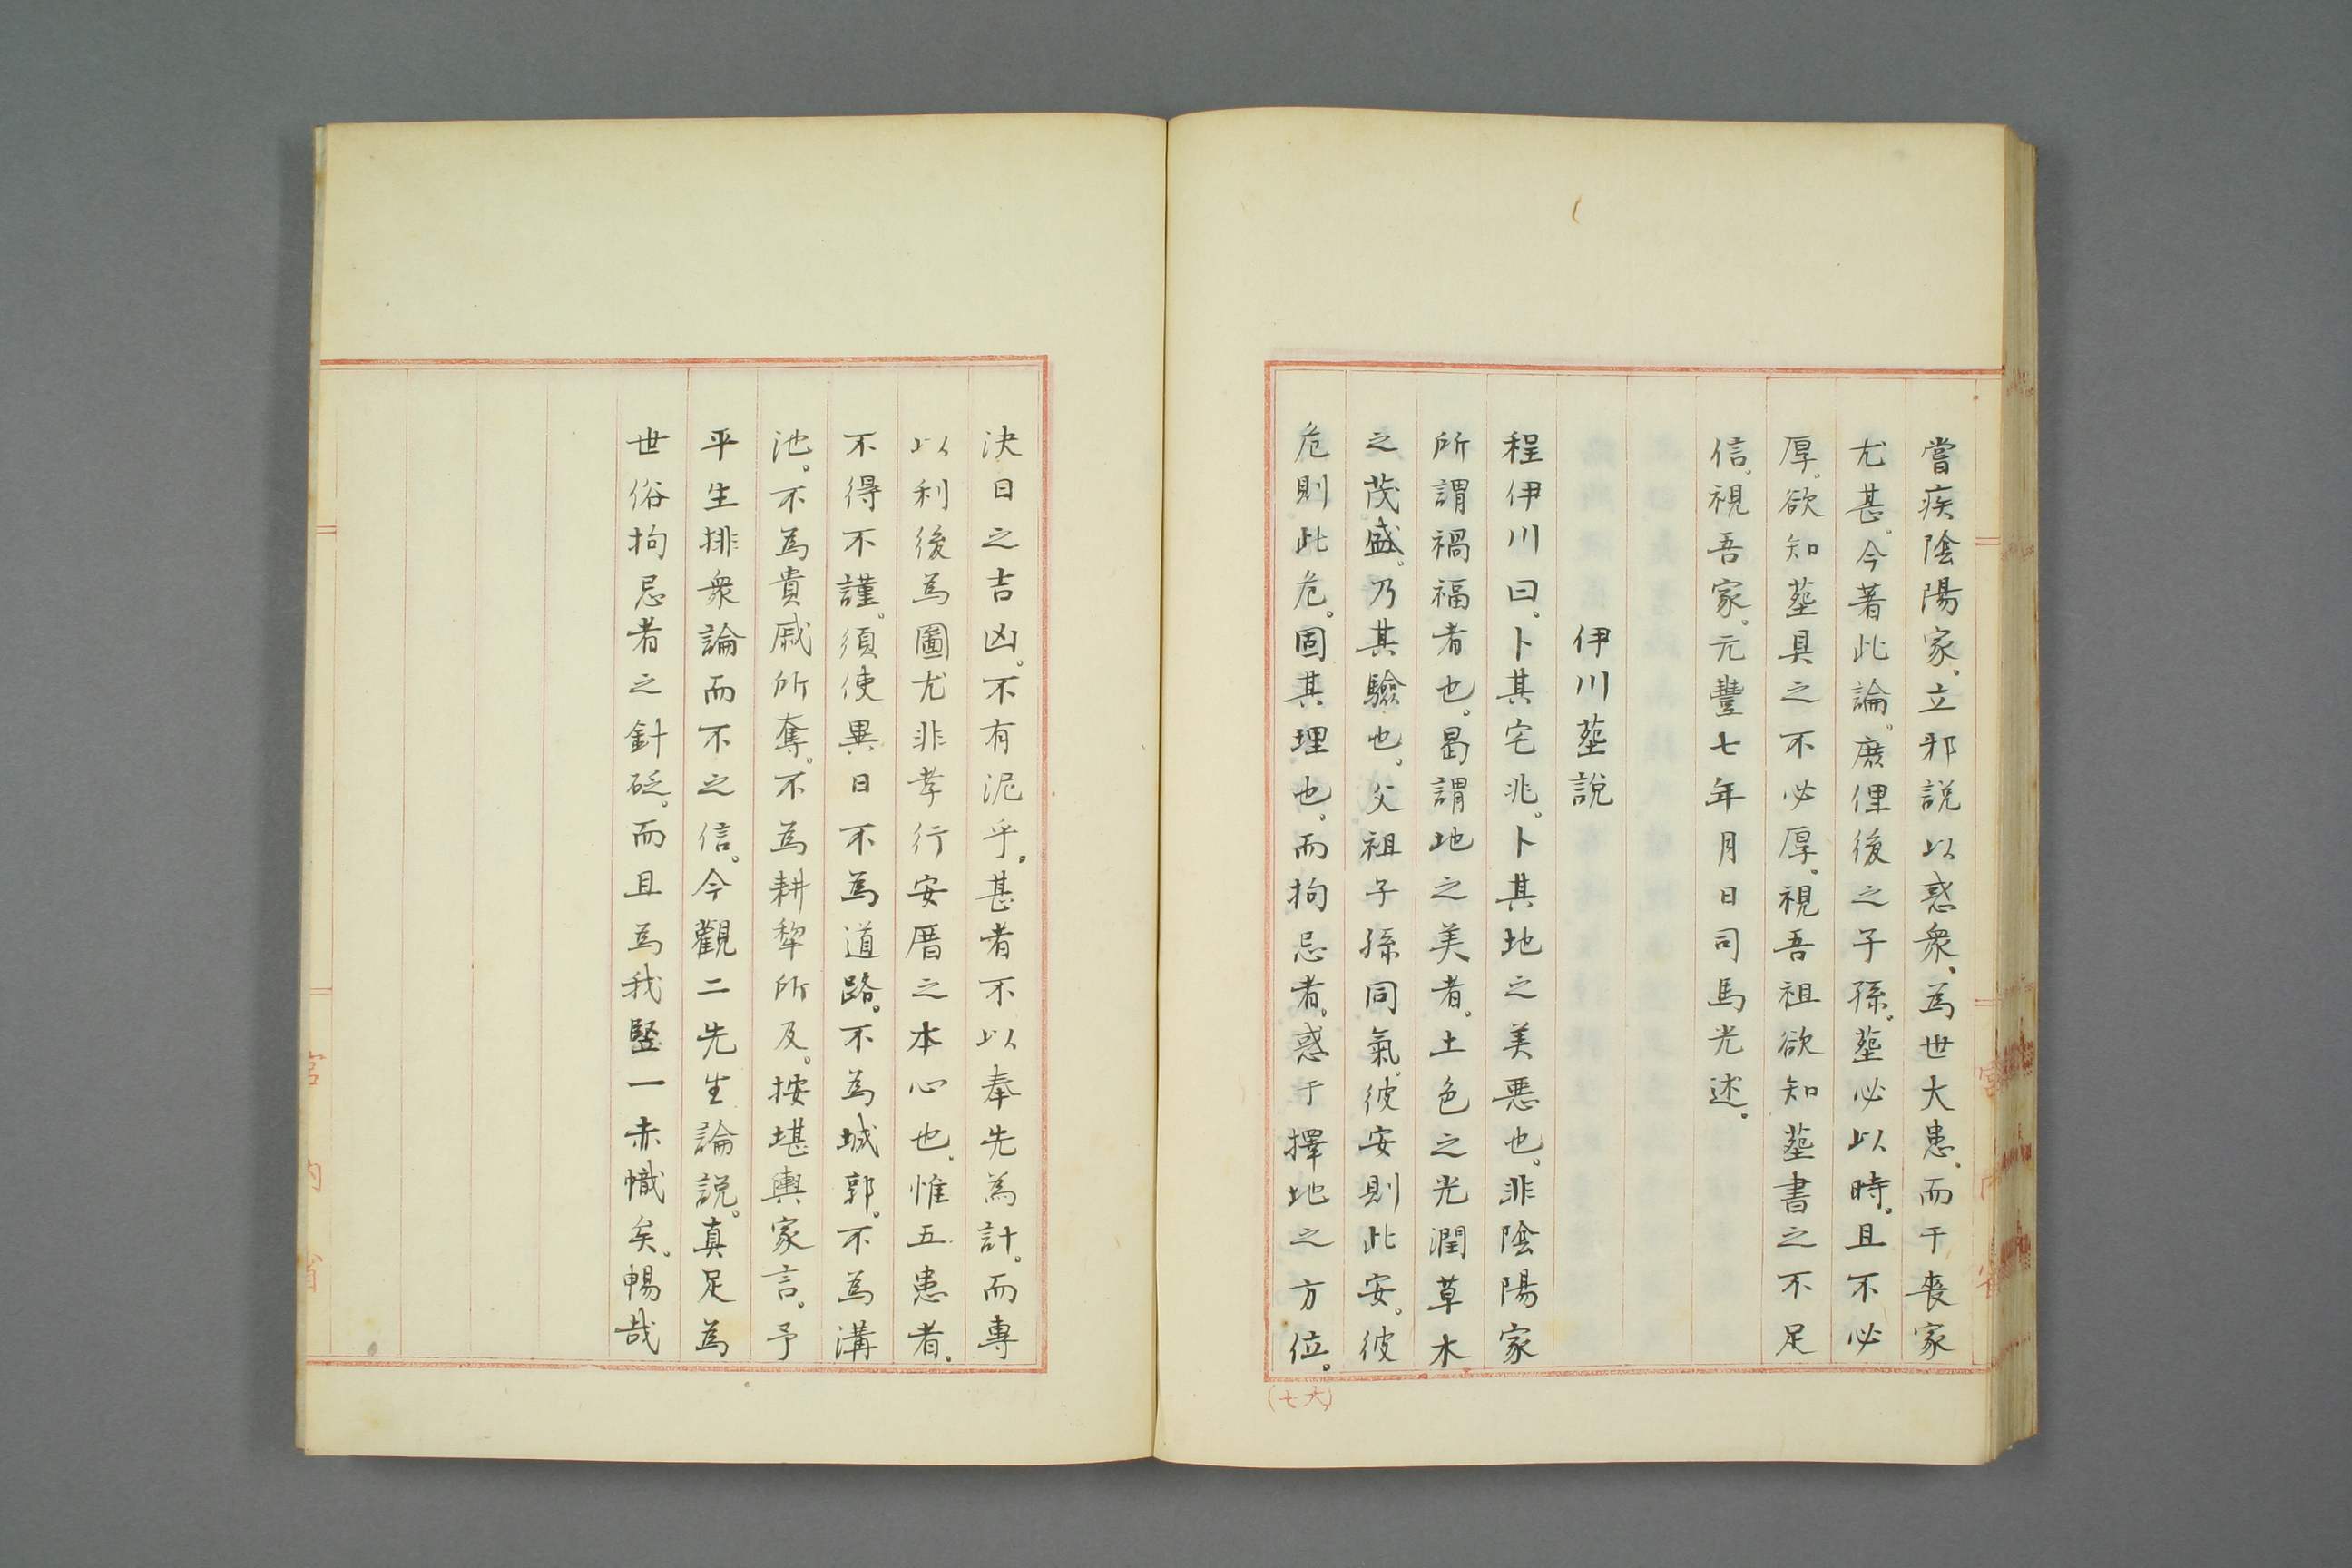 嘗疾陰陽家、立邪説以惑衆、為世大患、而于喪家
尤甚。今著此論。庶俚後之子孫。塟必以時。且不必
厚。欲知塟具之不必厚。視吾祖欲知塟書之不足
信。視吾家。元豐七年月日司馬光述。
伊川塟説
程伊川曰、卜其宅兆。卜其地之美悪也。非陰陽家
所謂禍福者也。曷謂地之美者。土色之光潤草木
之茂盛。乃其驗也。父祖子孫同氣。彼安則此安。彼
危則此危。固其理也。而拘忌者。惑于擇地之方位。
(七六)
決日之吉凶。不有泥乎。甚者不以奉先為計。而專
以利後為圖尤非孝行安厝之本心也。惟五患者。
不得不謹。須使異日不為道路。不為城郭。不為溝
池。不為貴戚所奪。不為耕犂所及。按堪輿家言。予
平生排衆論而不之信。今觀二先生論説。真足為
世俗拘忌者之針砭。而且為我豎一赤幟矣。暢哉
宮内省